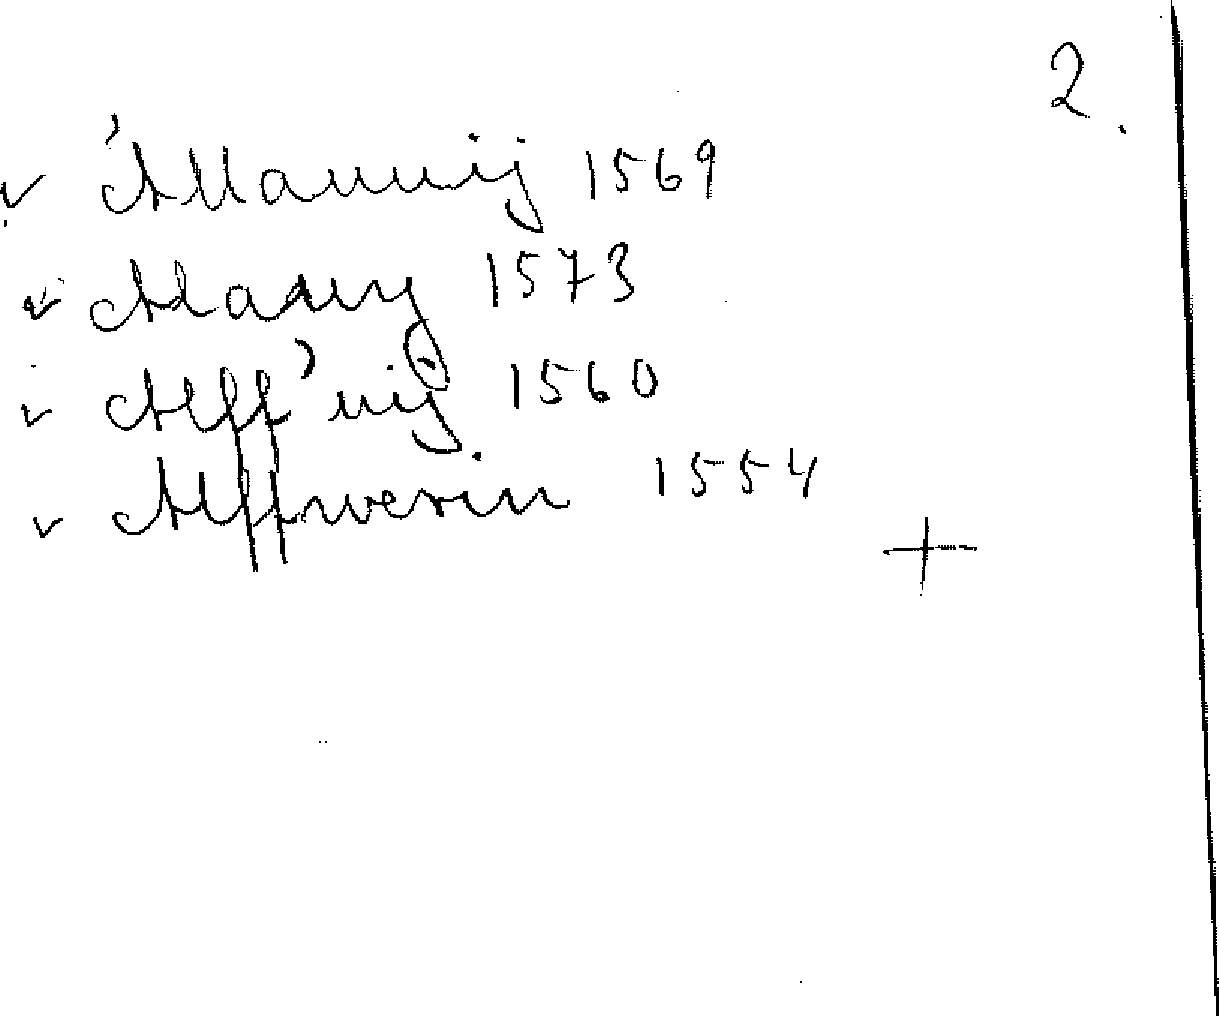 2.
v Allannij 1569
v Alany 1573
v Alff'nij 1560
v Alffwerin 1554
+